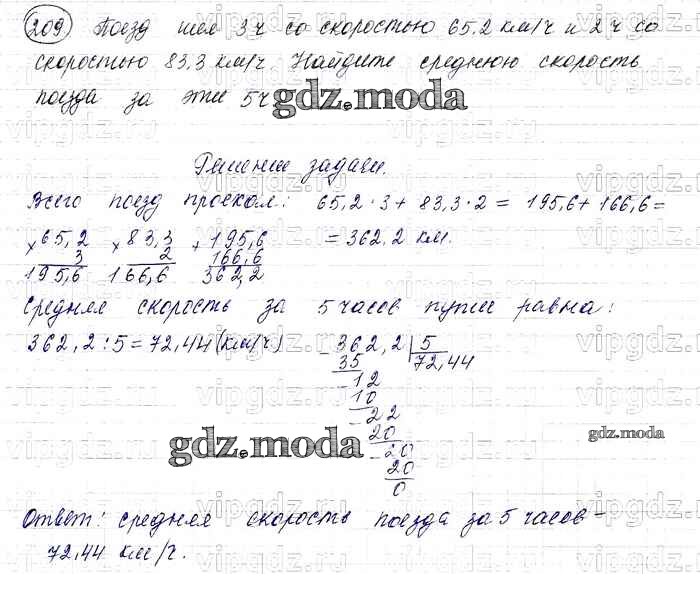 209 Поезд шел 3ч со скоростью 65.2 км/ч и 2ч со
скоростью 83,3 км/ч. Найдите среднюю скорость
поезда за эти 5ч
gdz.moda
Решение задачи.
Всего поезд проехал: 65,2 · 3 + 83,3 · 2 = 195,6 + 166,6 =
× 65,2 × 83,3 + 195,6 = 362,2 км.
3 2 166,6
195,6 166,6 362,2
Средняя скорость за 5 часов пути равна:
362,2 : 5 = 72,44 (км/ч) - 362,2 5
35 72,44
- 12
10
- 22
20
- 20
20
0
gdz.moda
gdz.moda
Ответ: средняя скорость поезда за 5 часов -
72,44 км/ч.
vipgdz.ru